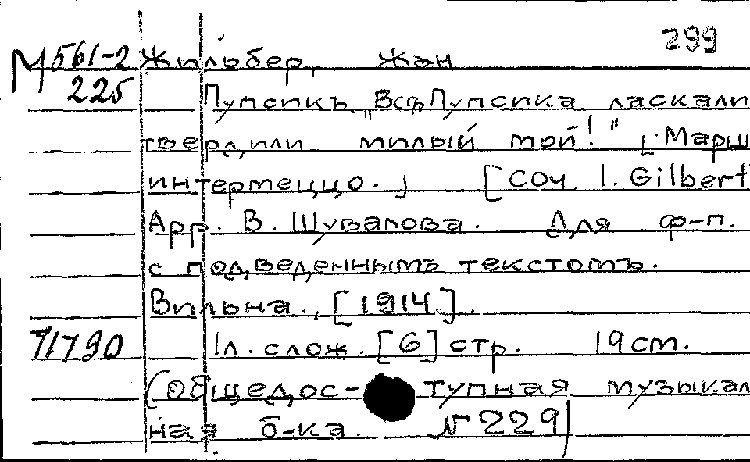 299
М 561-2 Жильбер, Жан
225 Пупсикъ „Всѣ Пупсика ласкали
твердили милый мой!" [Марш
интермеццо.] [Соч. I. Gilbert
Арр. В. Шувалова. Для ф-п.
с подведеннымъ текстомъ.
Вильна, [1914].
71790 1л. слож. [6] стр. 19 см.
(Общедоступная музыкал
ная б-ка. № 229)